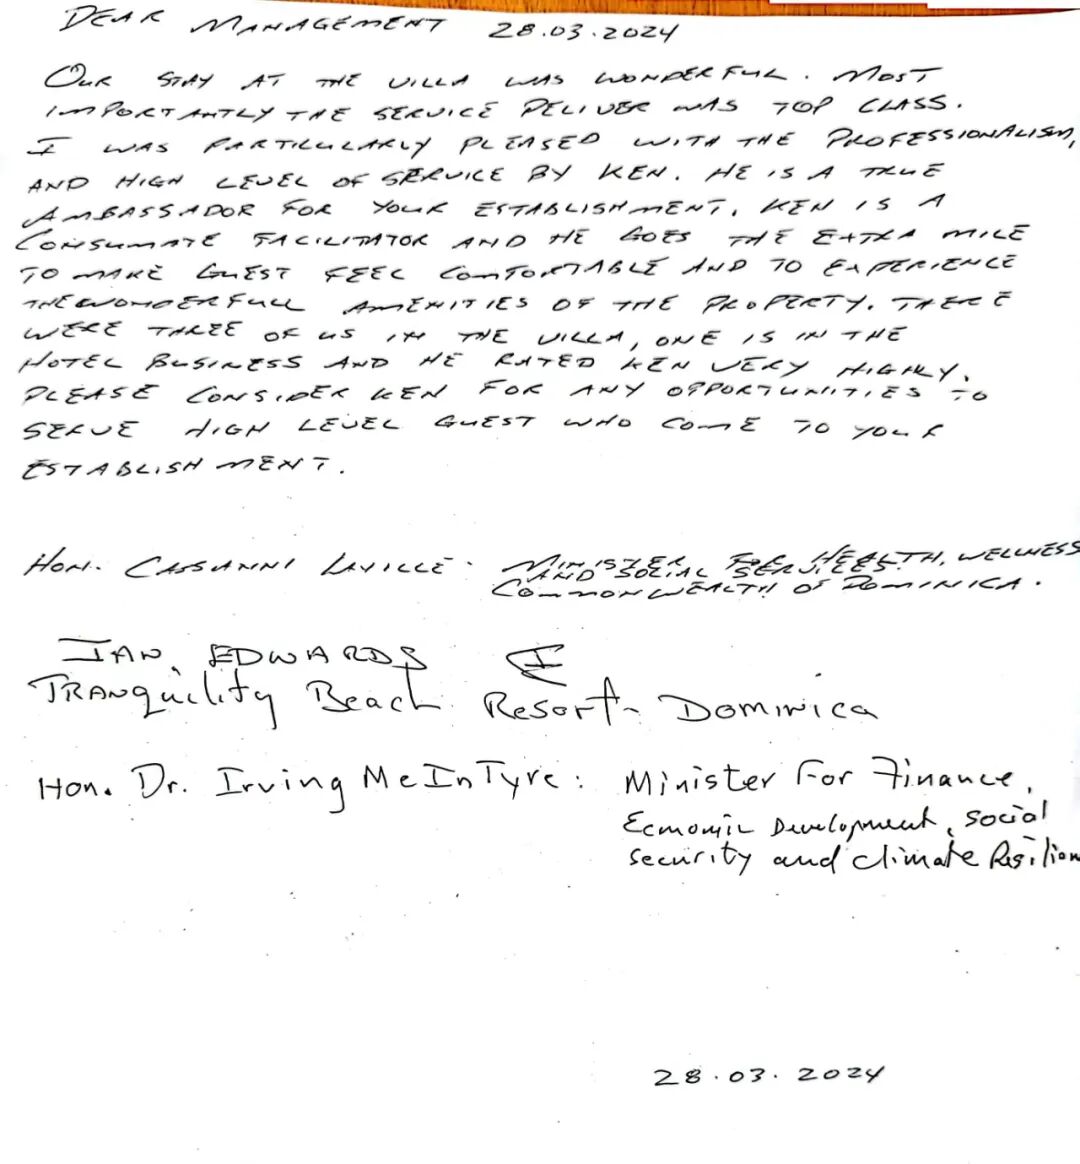 DEAR MANAGEMENT 28.03.2024
OUR STAY AT THE VILLA WAS WONDERFUL. MOST
IMPORTANTLY THE SERVICE DELIVER WAS TOP CLASS.
I WAS PARTICULARLY PLEASED WITH THE PROFESSIONALISM,
AND HIGH LEVEL OF SERVICE BY KEN. HE IS A TRUE
AMBASSADOR FOR YOUR ESTABLISHMENT. KEN IS A
CONSUMATE FACILITATOR AND HE GOES THE EXTRA MILE
TO MAKE GUEST FEEL COMFORTABLE AND TO EXPERIENCE
THE WONDERFULL AMENITIES OF THE PROPERTY. THERE
WERE THREE OF US IN THE VILLA, ONE IS IN THE
HOTEL BUSINESS AND HE RATED KEN VERY HIGHLY.
PLEASE CONSIDER KEN FOR ANY OPPORTUNITIES TO
SERVE HIGH LEVEL GUEST WHO COME TO YOUR
ESTABLISHMENT.
HON. CASSANNI LAVILLE: MINISTER FOR HEALTH, WELLNESS
AND SOCIAL SERVICES.
COMMONWEALTH OF DOMINICA.
IAN. EDWARDS
TRANquility Beach Resort- Dominica
Hon. Dr. Irving McInTyre: Minister For Finance,
Economic Development, social
security and climate Resilien
28.03.2024